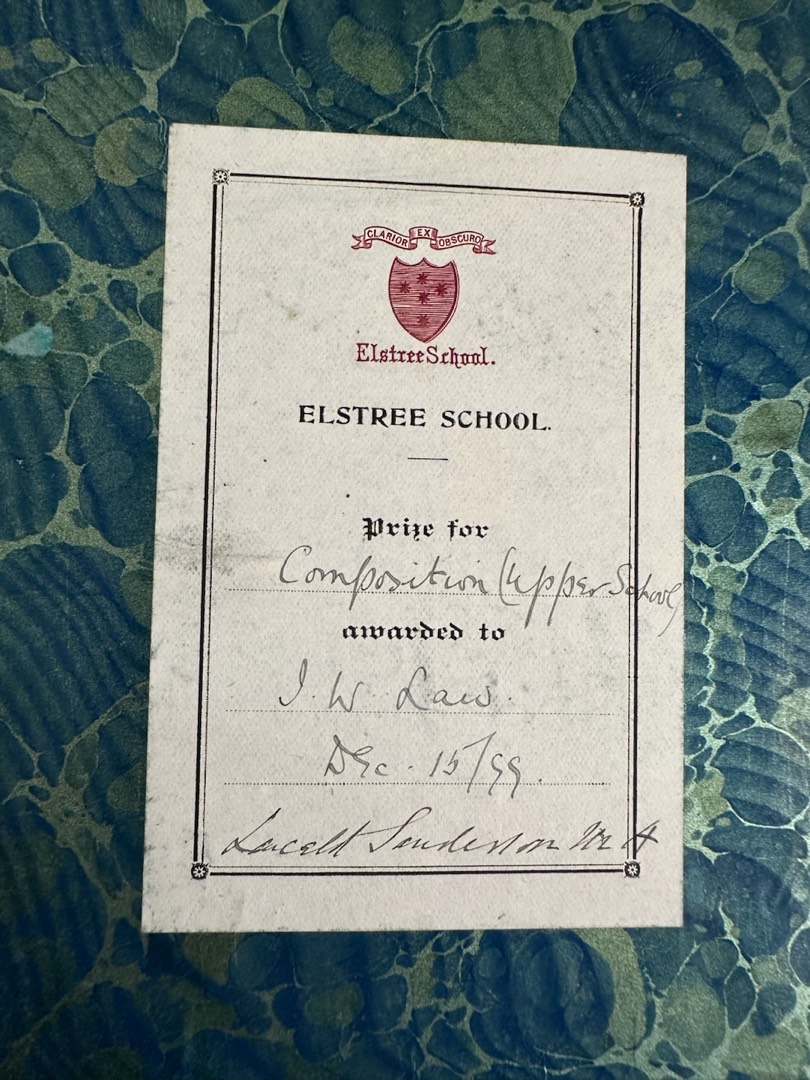 CLARIOR EX OBSCURO
Elstree School.
ELSTREE SCHOOL.
Prize for
Composition (Upper School)
awarded to
I. W. Law.
Dec. 15/99.
Sanderson